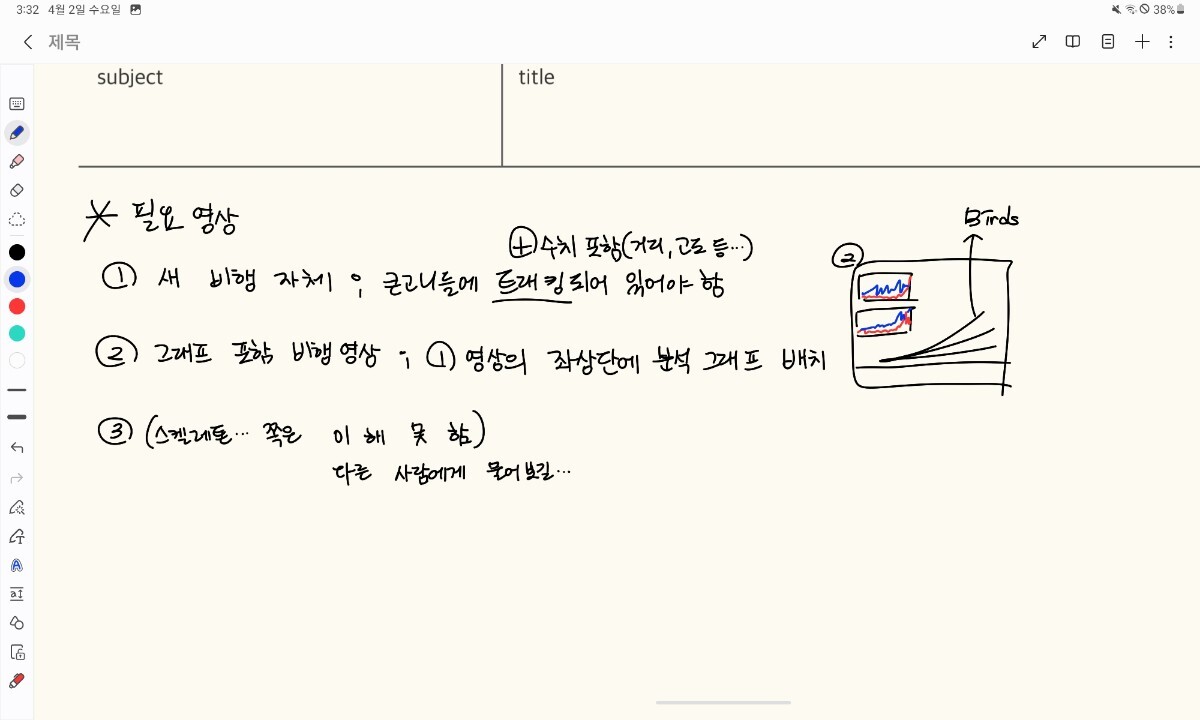 3:32 4월 2일 수요일
38%
제목
subject
title
필요 영상
Birds
⊕ 수치 포함(거리, 고도 등…)
① 새 비행 자체 ; 큰고니들에 트래킹 되어 있어야 함
②
② 그래프 포함 비행 영상 ; ① 영상의 좌상단에 분석 그래프 배치
③ (스켈레톤… 쪽은 이해 못 함)
다른 사람에게 물어보길…